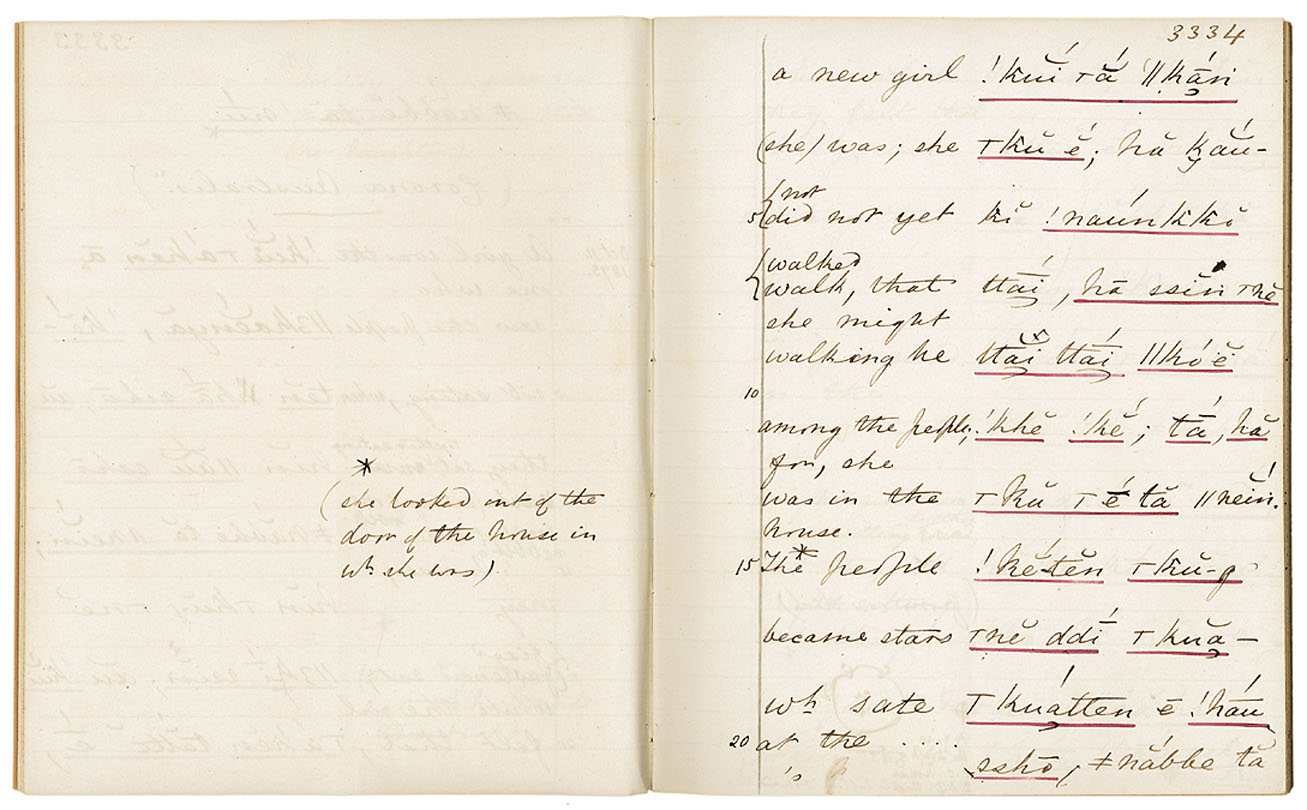 (she looked out of the
door of the house in
wh. she was)
3334
a new girl !kŭí ┬ắ ǁkắri
(she) was; she ┬kŭ ĕ́; hă k̯ắŭ-
not
5 did not yet kĭ !naúnkkŏ
walked
walk, that ttāí, hă ssĭn ┬nĕ
she might
walking he ttāĭ ttāí ǁkóĕ
10
among the people; !khĕ !kĕ́; tā́, hă
for, she
was in the ┬kŭ ┬ĕ́ tă ǁnĕĭń.
house.
15 The* people !kĕ́tĕn ┬kŭ-g
became stars ┬nĕ ddí ┬kŭa-
wh sate ┬kuátten ē !háu
20 at the ....
sshō, ǂnábbe tă